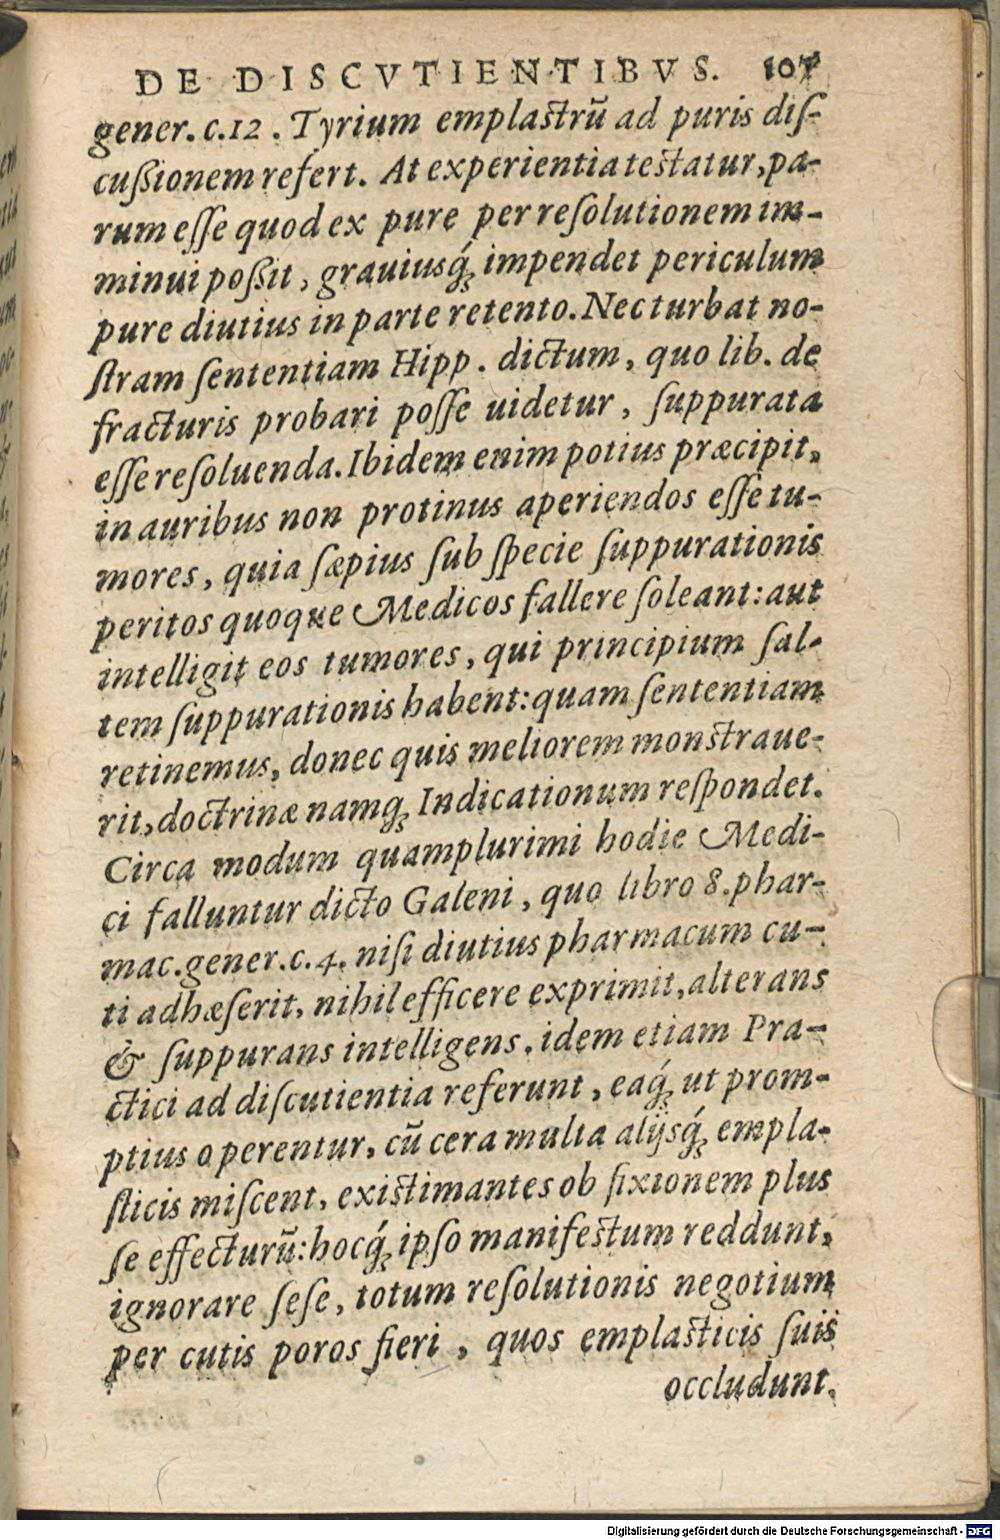 DE DISCVTIENTIBVS. 107
gener. c. 12. Tyrium emplastrũ ad puris diſ-
cußionem refert. At experientia testatur, pa-
rum eſſe quod ex pure per reſolutionem im-
minui poßit, grauiusq́ꝫ impendet periculum
pure diutius in parte retento. Nec turbat no-
ſtram ſententiam Hipp. dictum, quo lib. de
fracturis probari poſſe uidetur, ſuppurata
eſſe reſoluenda. Ibidem enim potius præcipit,
in auribus non protinus aperiendos eſſe tu-
mores, quia ſæpius ſub ſpecie ſuppurationis
peritos quoque Medicos fallere ſoleant: aut
intelligit eos tumores, qui principium ſal-
tem ſuppurationis habent: quam ſententiam
retinemus, donec quis meliorem monstraue-
rit, doctrinæ namqꝫ Indicationum reſpondet.
Circa modum quamplurimi hodie Medi-
ci falluntur dicto Galeni, quo libro 8. phar-
mac. gener. c. 4. niſi diutius pharmacum cu-
ti adhæſerit, nihil efficere exprimit, alterans
& ſuppurans intelligens, idem etiam Pra-
ctici ad diſcutientia referunt, eaq́ꝫ ut prom-
ptius operentur, cũ cera multa alijsq́ꝫ empla-
ſticis miſcent, existimantes ob fixionem plus
ſe effecturũ: hocq́ꝫ ipſo manifestum reddunt,
ignorare ſeſe, totum reſolutionis negotium
per cutis poros fieri, quos emplasticis ſuis
occludunt.
Digitalisierung gefördert durch die Deutsche Forschungsgemeinschaft - DFG